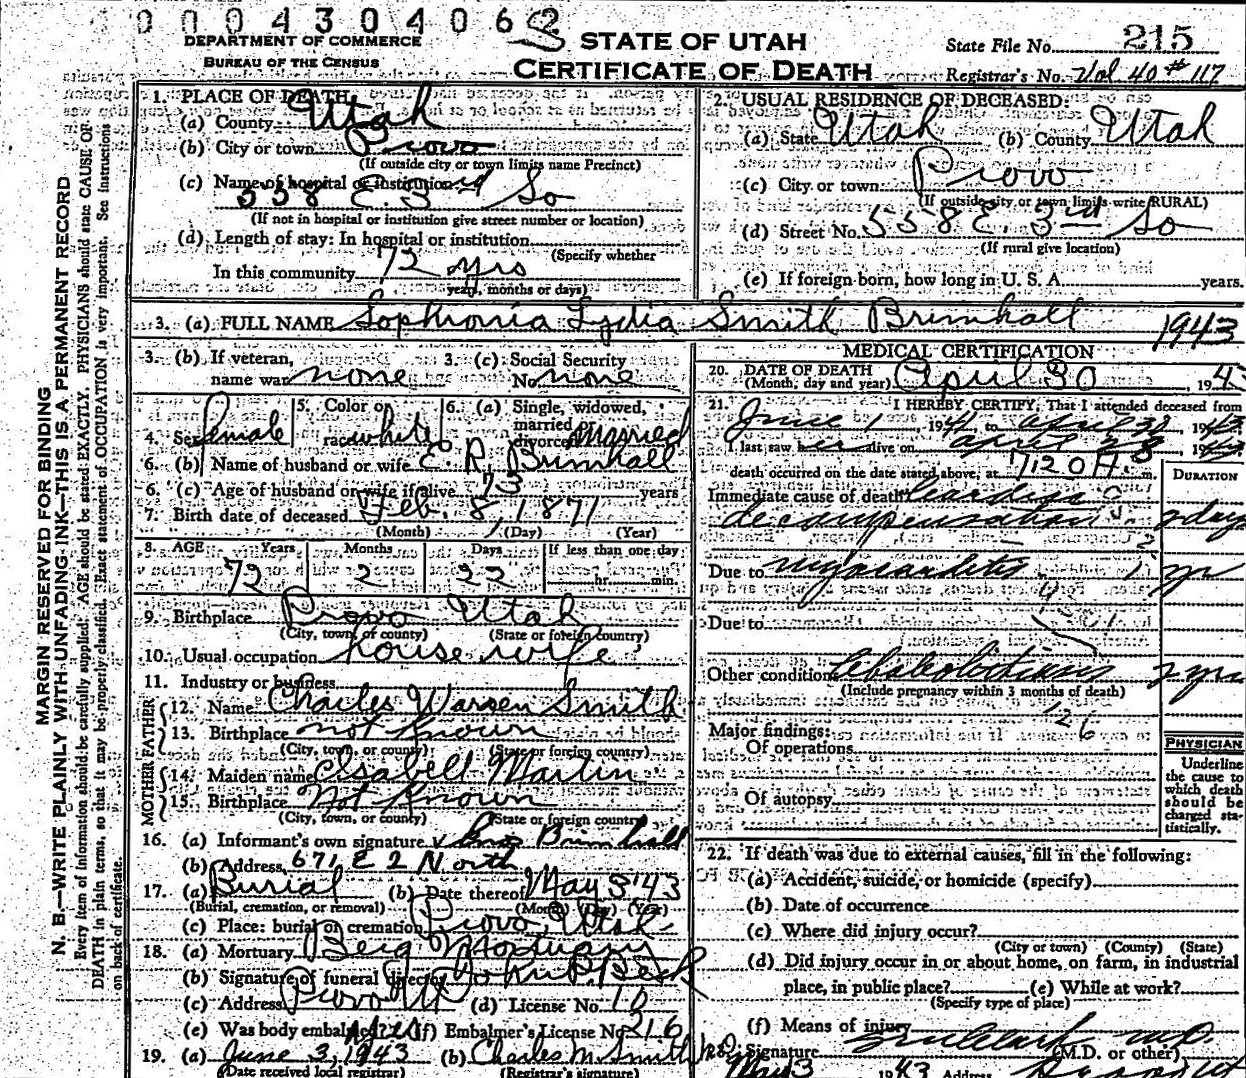 0 0 0 4 3 0 4 0 6 2
DEPARTMENT OF COMMERCE
BUREAU OF THE CENSUS
STATE OF UTAH
CERTIFICATE OF DEATH
State File No. 215
Registrar's No. Vol 40 # 117
MARGIN RESERVED FOR BINDING
N. B.—WRITE PLAINLY WITH UNFADING INK—THIS IS A PERMANENT RECORD
Every item of information should be carefully supplied. AGE should be stated EXACTLY. PHYSICIANS should state CAUSE OF
DEATH in plain terms, so that it may be properly classified. Exact statement of OCCUPATION is very important. See instructions
on back of certificate.
1. PLACE OF DEATH:
(a) County Utah
(b) City or town Provo
(If outside city or town limits name Precinct)
(c) Name of hospital or institution:
558 E. 3rd So
(If not in hospital or institution give street number or location)
(d) Length of stay: In hospital or institution
(Specify whether
In this community 72 yrs
years, months or days)
2. USUAL RESIDENCE OF DECEASED:
(a) State Utah (b) County Utah
(c) City or town Provo
(If outside city or town limits write RURAL)
(d) Street No. 558 E. 3rd So
(If rural give location)
(e) If foreign born, how long in U. S. A. years.
3. (a) FULL NAME Sophronia Lydia Smith Brimhall 1943
3. (b) If veteran, name war none
3. (c) Social Security No. none
4. Sex female
5. Color or race white
6. (a) Single, widowed, married or divorced Married
6. (b) Name of husband or wife E. R. Brimhall
6. (c) Age of husband or wife if alive 73 years
7. Birth date of deceased Feb. 8, 1871
(Month) (Day) (Year)
8. AGE Years Months Days If less than one day
72 2 22 hr. min.
9. Birthplace Provo Utah
(City, town, or county) (State or foreign country)
10. Usual occupation house wife
11. Industry or business
FATHER
12. Name Charles Warren Smith
13. Birthplace not known
(City, town, or county) (State or foreign country)
MOTHER
14. Maiden name Isabell Martin
15. Birthplace Not known
(City, town, or county) (State or foreign country)
16. (a) Informant's own signature Brimhall
(b) Address 671 E 2 North
17. (a) Burial (b) Date thereof May 3 '43
(Burial, cremation, or removal) (Month) (Day) (Year)
(c) Place: burial or cremation Provo, Utah
18. (a) Mortuary Berg Mortuary
(b) Signature of funeral director
(c) Address Provo Ut (d) License No. 10
(e) Was body embalmed? (f) Embalmer's License No. 216
19. (a) June 3, 1943 (b) Charles M. Smith M.D.
(Date received local registrar) (Registrar's signature)
MEDICAL CERTIFICATION
20. DATE OF DEATH
(Month, day and year) April 30, 1943
21. I HEREBY CERTIFY, That I attended deceased from
June 1 19 to April 30 1943
I last saw her alive on April 28 1943
death occurred on the date stated above, at 7:20 A. m.
DURATION
Immediate cause of death Cardiac
decompensation 2 days
Due to myocarditis yr
Due to
Other conditions yrs
(Include pregnancy within 3 months of death)
126
Major findings:
Of operations
Of autopsy
PHYSICIAN
Underline
the cause to
which death
should be
charged sta-
tistically.
22. If death was due to external causes, fill in the following:
(a) Accident, suicide, or homicide (specify)
(b) Date of occurrence
(c) Where did injury occur?
(City or town) (County) (State)
(d) Did injury occur in or about home, on farm, in industrial
place, in public place? (e) While at work?
(Specify type of place)
(f) Means of injury
Signature Clark M.D.
(M.D. or other)
May 3 1943 Address Provo Ut